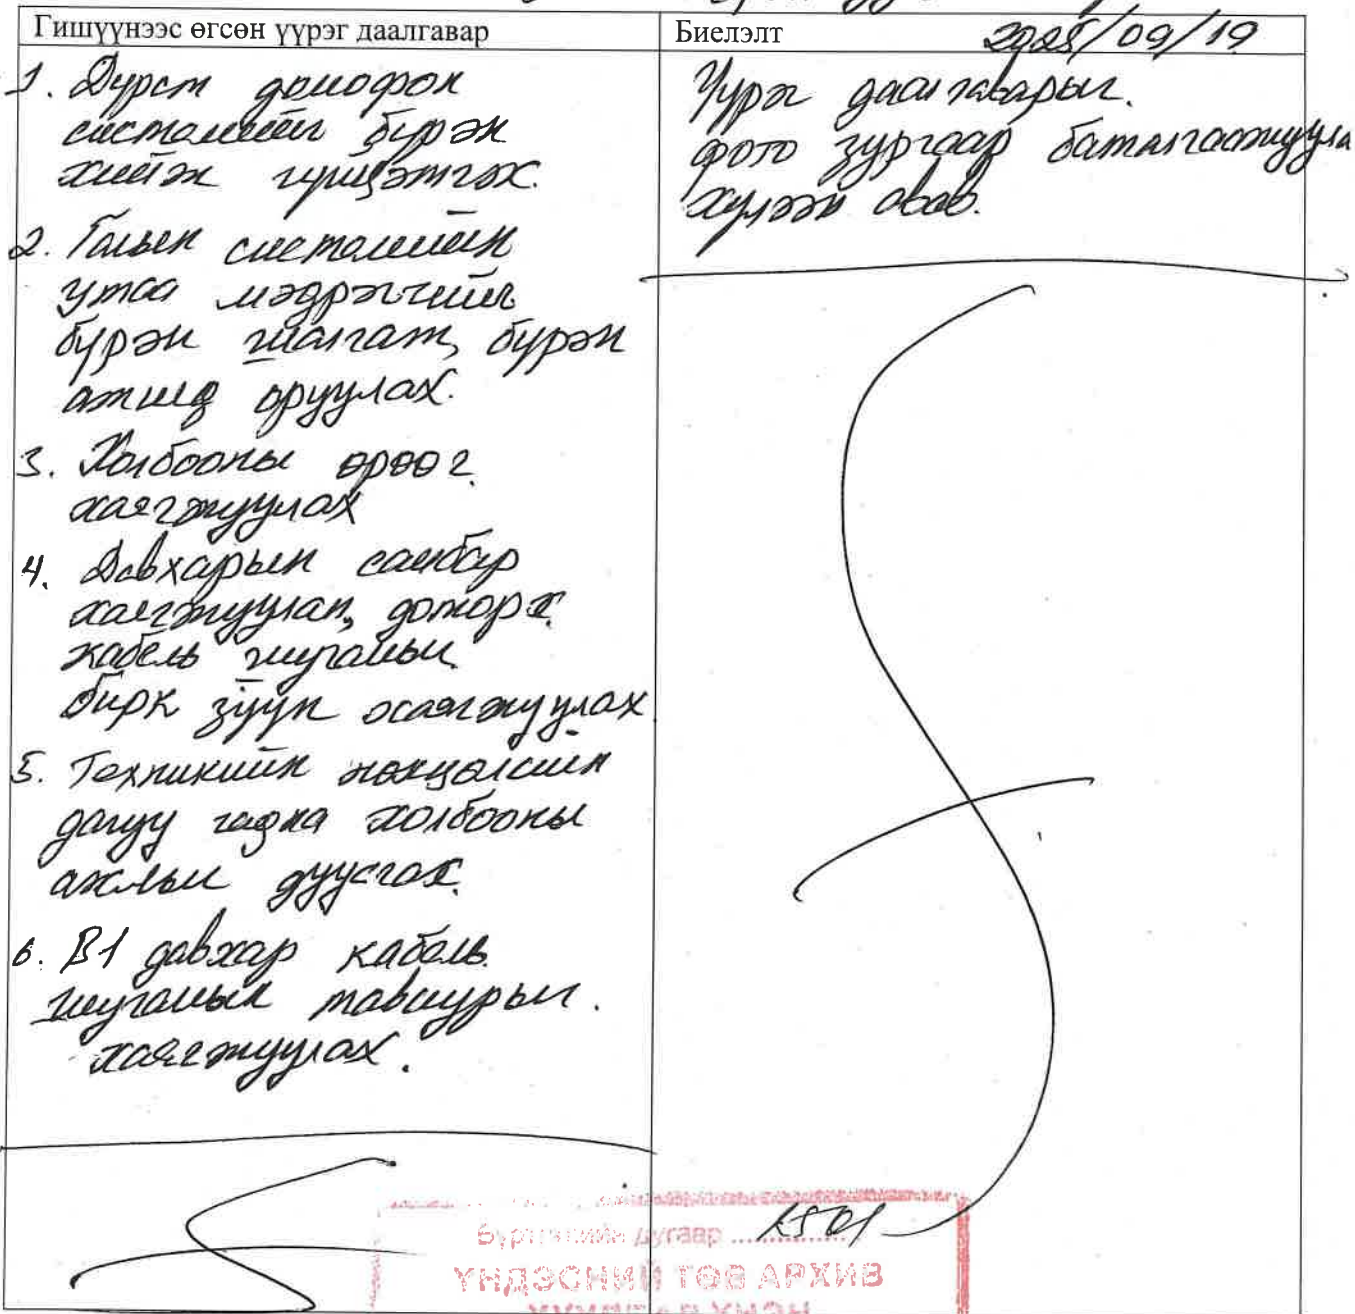 Гишүүнээс өгсөн үүрэг даалгавар
Биелэлт 2025/09/19
1. Дүрст домофон
системийг бүрэн
хийж гүйцэтгэх.
2. Галын системийн
утаа мэдрэгчийг
бүрэн шалгаж, бүрэн
ажилд оруулах.
3. Холбооны өрөөг
хаягжуулах
4. Давхарын самбар
хаягжуулан, доторх
кабель шугамын
бирк зүүн хаягжуулах
5. Техникийн нөхцөлийн
дагуу гадна холбооны
ажлыг дуусгах.
6. В1 давхар кабель
шугамын тавиурыг
хаягжуулах.
Үүрэг даалгаварыг
фото зургаар баталгаажуула
хүлээн авав.
Бүртгэлийн дугаар ..............
ҮНДЭСНИЙ ТӨВ АРХИВ